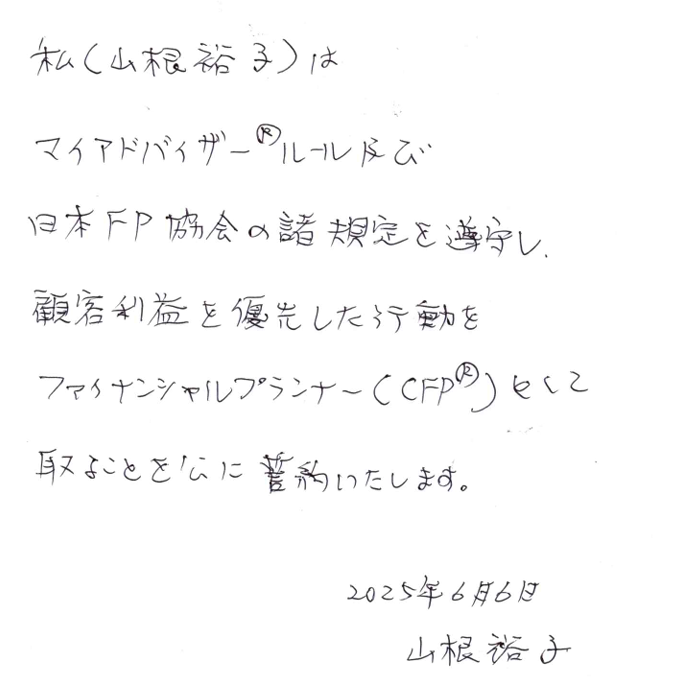 私(山根裕子)は
マイアドバイザー®ルール及び
日本FP協会の諸規定を遵守し、
顧客利益を優先した行動を
ファイナンシャルプランナー(CFP®)として
取ることを公に誓約いたします。
2025年6月6日
山根裕子